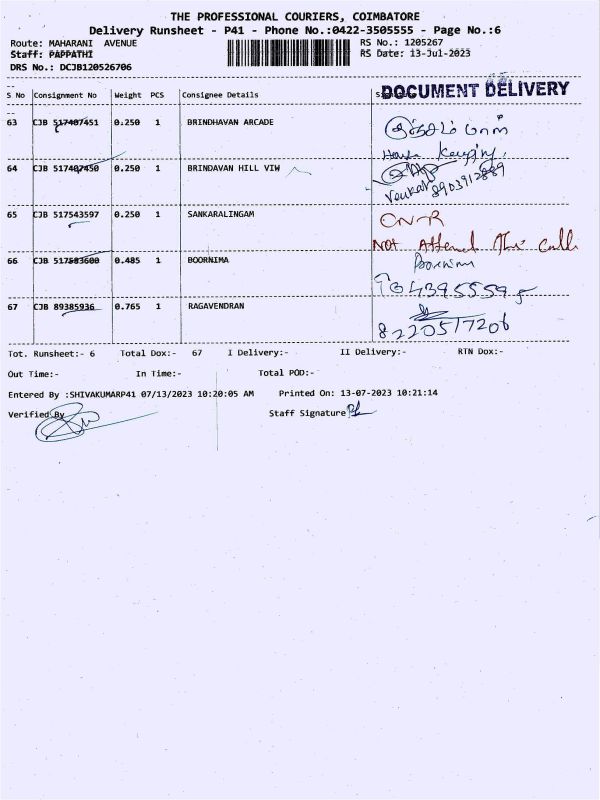 THE PROFESSIONAL COURIERS, COIMBATORE
Delivery Runsheet - P41 - Phone No.:0422-3505555 - Page No.:6
Route: MAHARANI AVENUE RS No.: 1205267
Staff: PAPPATHI RS Date: 13-Jul-2023
DRS No.: DCJB120526706
DOCUMENT DELIVERY
S No Consignment No Weight PCS Consignee Details
63 CJB 517407451 0.250 1 BRINDHAVAN ARCADE
64 CJB 517407450 0.250 1 BRINDAVAN HILL VIW
Venkat 8903912889
65 CJB 517543597 0.250 1 SANKARALINGAM
Not Attend The Call
66 CJB 517583600 0.485 1 BOORNIMA Boornima
67 CJB 89385936 0.765 1 RAGAVENDRAN
8220517206
Tot. Runsheet:- 6 Total Dox:- 67 I Delivery:- II Delivery:- RTN Dox:-
Out Time:- In Time:- Total POD:-
Entered By :SHIVAKUMARP41 07/13/2023 10:20:05 AM Printed On: 13-07-2023 10:21:14
Verified By Staff Signature